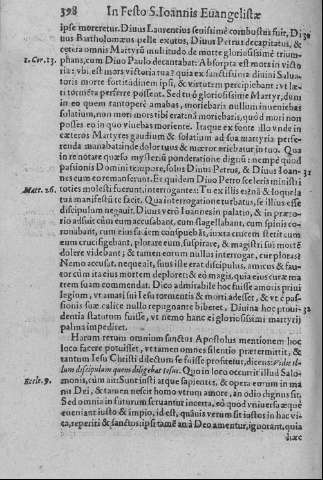 398 In Festo S. Ioannis Euangelistæ
ipse moreretur. Diuus Laurentius seuissimè combustus fuit, Di 30
uus Bartholomæus pelle exutus, Diuus Petrus decapitatus, &
cetera omnis Martyrũ multitudo de morte gloriosissimè trium-
1. Cor. 15. phans, cum Diuo Paulo decantabat: Absorpta est mors in victo
ria: vbi est mors victoria tua? quia ex sanctissima diuini Salua-
toris morte fortitudinem ipsi, & virtutem percipiebant: vt læ-
ti tormẽta perferre possent. Sed tu ô gloriosissime Martyr, dum
in eo quem tantoperè amabas, moriebaris nullum inueniebas
solatium, non mori mors tibi erat, nã moriebaris, quòd mori non
posses eo in quo viuebas moriente. Itaque ex fonte illo vnde in
cæteros Martyres gaudium & solatium ad sua martyria perfe-
renda manabat, inde dolor tuus & mæror oriebatur in tuo. Qua
in re notare quæso mysteriũ ponderatione dignũ: nempè quòd
passionis Domini tempore, solus Diuus Petrus, & Diuus Ioan- 31
nes cum eo remanserunt. Et quidem Diuo Petro sceleris ministri
Mat. 26. toties molesti fuerunt, interrogantes: Tu ex illis es: nã & loquela
tua manifestũ te facit. Qua interrogatione turbatus, se illius esse
discipulum negauit. Diuus verò Ioannes in palatio, & in præto-
rio adfuit cùm eum accusabant, cum flagellabant, cum spinis co-
ronabant, cum eius faciem conspuebãt, iuxta crucem stetit cum
eum crucifigebant, plorare eum, suspirare, & magistri sui mortẽ
dolere videbant; & tamen eorum nullus interrogat, cur ploras?
Nemo accusat, nequè ait, suus ille erat discipulus, amicus & fau-
tor cùm ita eius mortem deploret: & eò magis, quia eius curæ ma
trem suam commendat. Dico admirabile hoc fuisse amoris priui
legium, vt amasius ipsius tormentis & morti adesset, & vt è pas-
sionis suæ calice nullo repugnante biberet. Diuina hoc proui- 32
dentia statutum fuisse, vt nemo hanc ei gloriosissimi martyrij
palma impediret.
Harum rerum omnium sanctus Apostolus mentionem hoc
loco facere potuisset, vt tamen omnes silentio prætermittit, &
tantum Iesu Christi dilectum se fuisse profitetur, dicens: Vidit il-
lum discipulum quem diligebat Iesus. Quo in loco occurrit illud Salo-
Eccle. 9. monis, cùm ait: Sunt iusti atque sapientes, & opera eorum in ma
nu Dei, & tamen nescit homo vtrum amore, an odio dignus sit.
Sed omnia in futurum seruantur incerta, eò quod vniuersa æquè
eueniant iusto & impio, id est, quãuis verum sit iustos in hac vi-
ta, reperiri & sanctos: ipsi tamẽ an à Deo amentur, ignorant, quia
diuæ